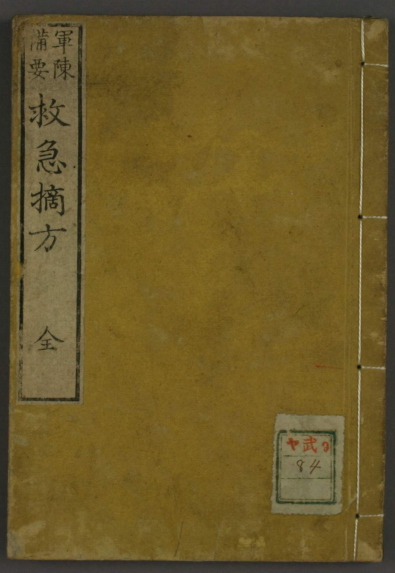 軍陳
備要
救急摘方 全
ヤ武9
84